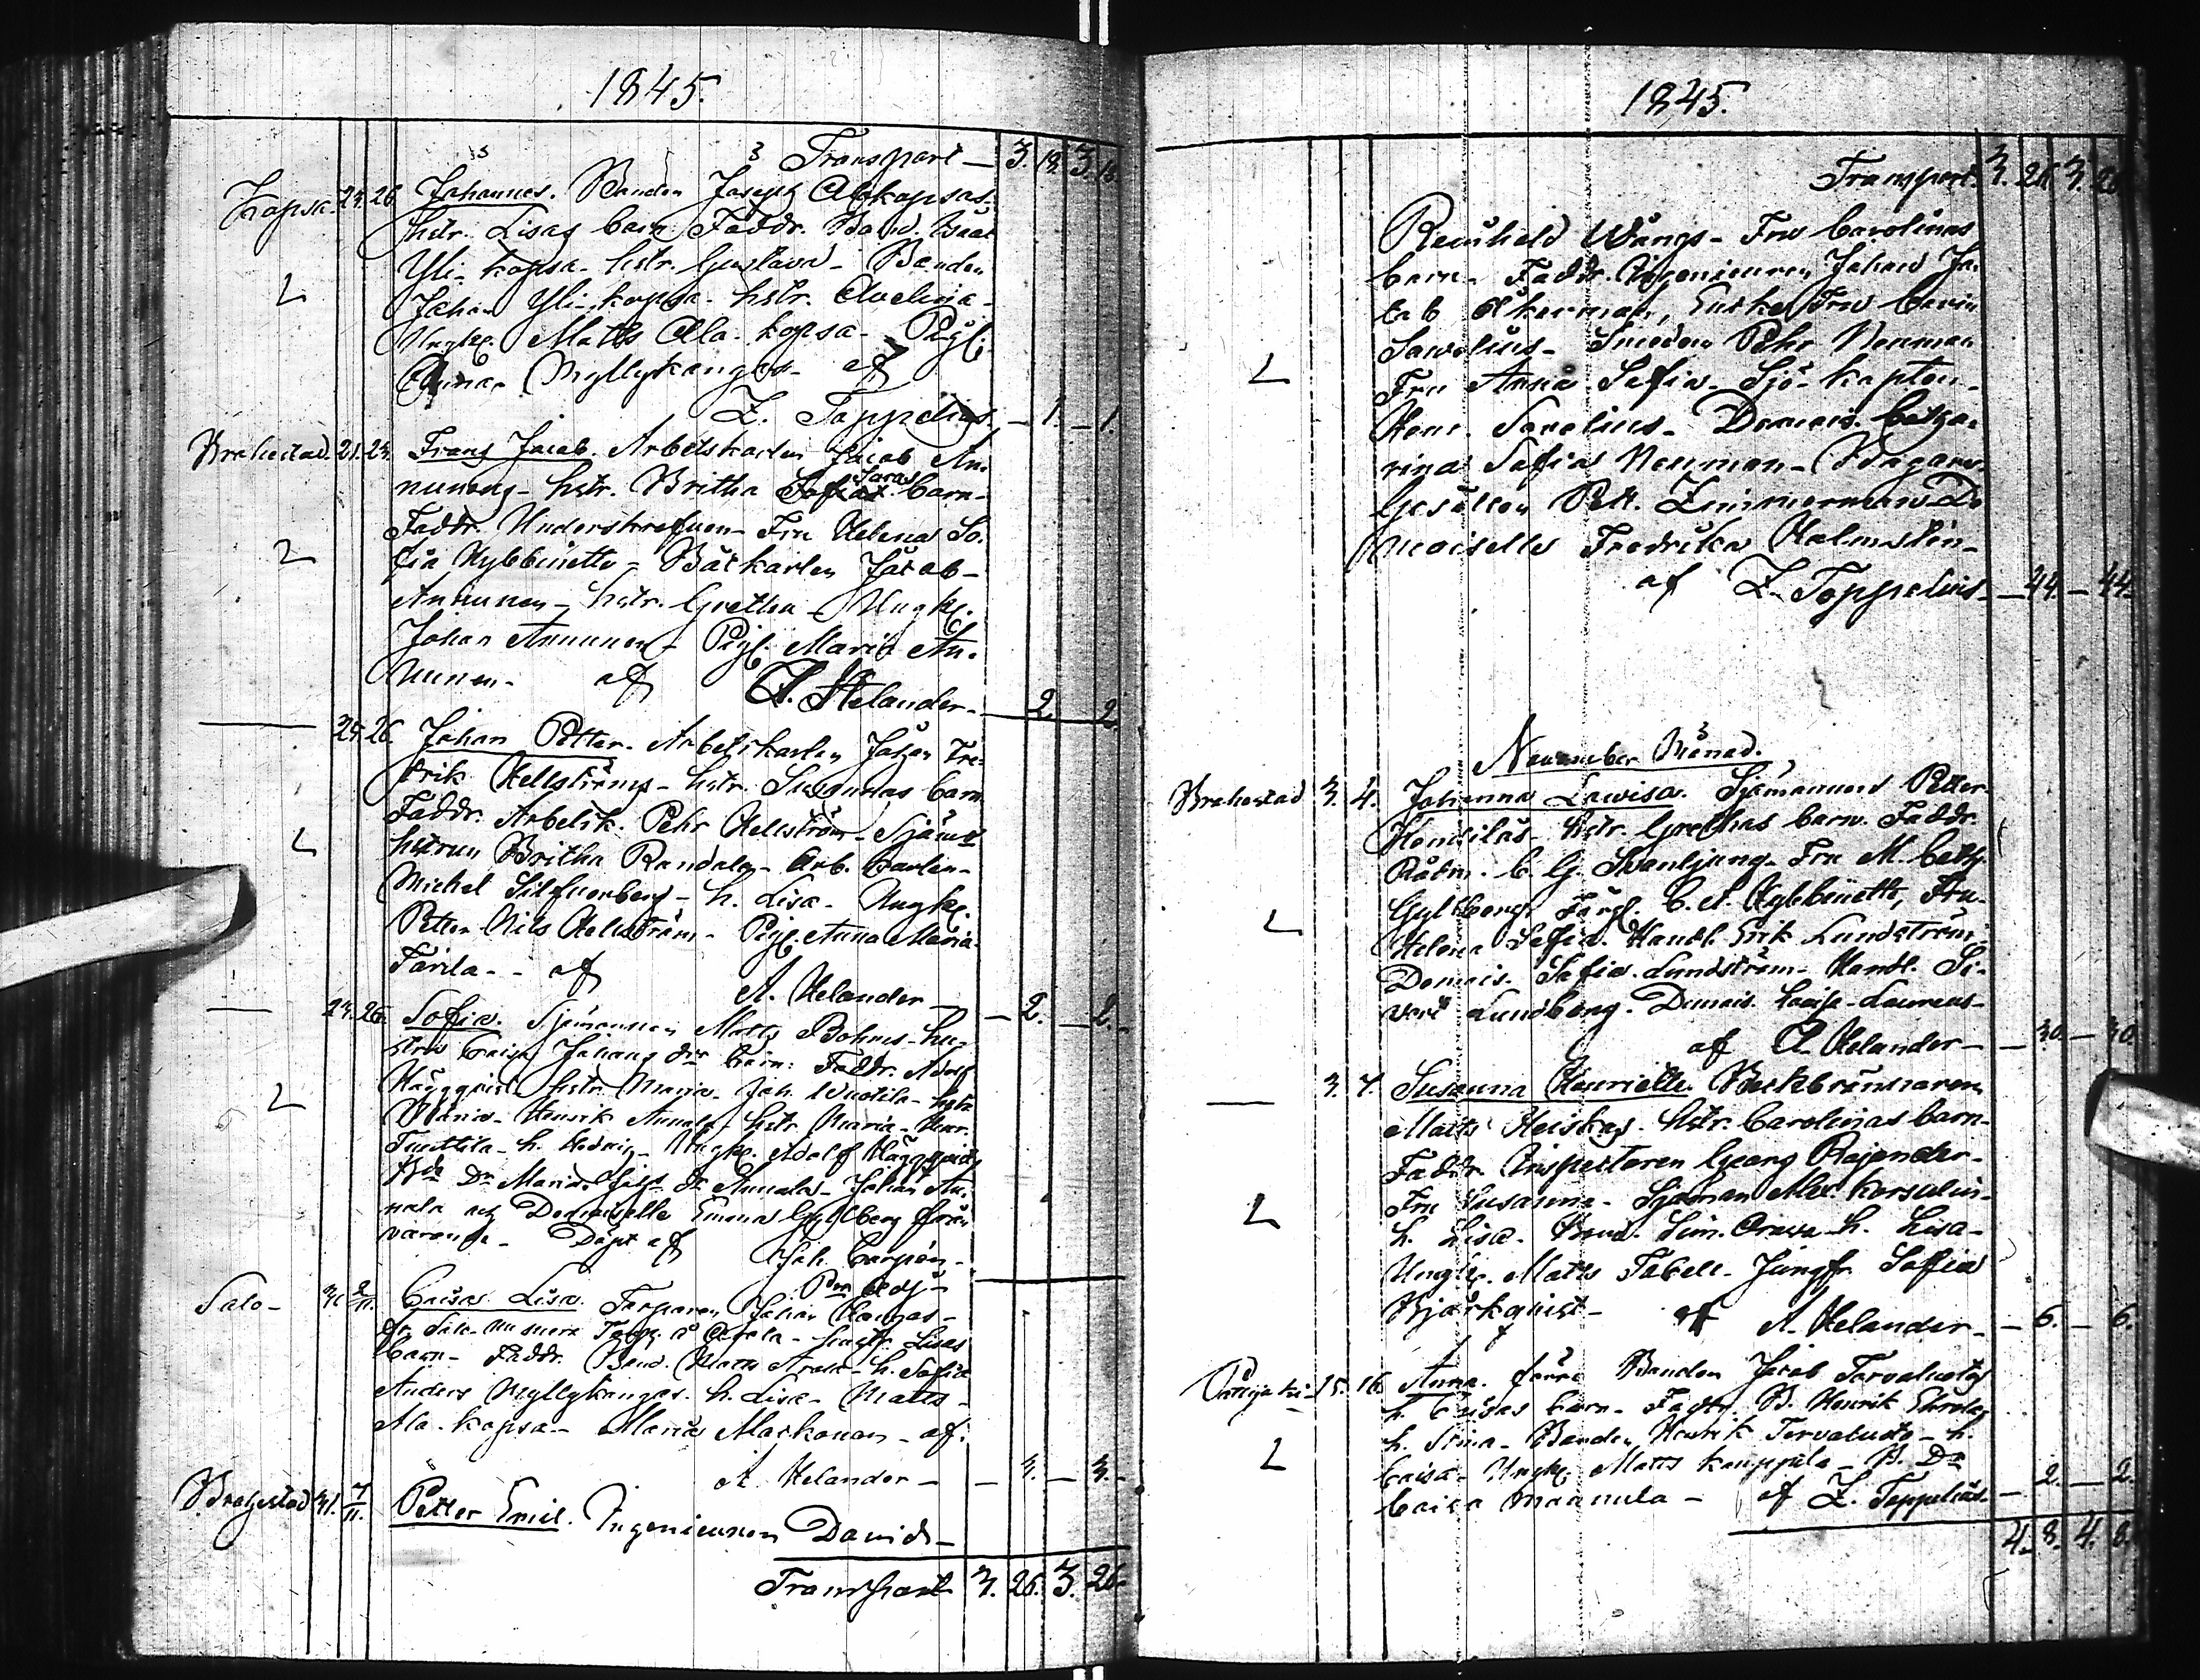 1845.
Transport — 3. 18. 3. 18
Kopsa. 24. 26 Johannes. Bonden Joseph Alakopsas
hstr. Lisas barn. Faddr. Bond. Isaac
Yli-kopsa- hstr. Gustava- Bonden
Johan Yli-kopsa- hstr. Avelina-
Ungk. Matts Ala-kopsa- Pig.
Anna Myllykangas- af
Z. Toppelius. — 1. — 1.
Brahestad. 21. 24. Frans Jacob. Arbetskarlen Jacob An-
nunens- hstr. Britha Saras barn-
Faddr. Underskrefven- Fru Helena So-
fia Hybbinette- Båtkarlen Jacob-
Annunen- hstr. Gretha- Ungk.
Johan Annunen- Pig. Maria An-
nunen- af A. Helander- 2. 2.
24. 26. Johan Petter. Arbetskarlen Johan Fre-
drik Hellströms- hstr. Susannas barn
Faddr. Arbetsk. Pehr Hellström- Sjöm.
hstrun Britha Randala- Arb. karlen-
Michel Silfverberg- h. Lisa- Ungk.
Petter Nils Hellström- Pig. Anna Maria
Farila- - af
A. Helander — 2. — 2.
24. 26. Sofia. Sjömannen Matts Bohms- hu-
stru Caisa Johans dr barn: Faddr. Adolf
Häggqvist hstr. Maria- Joh. hstr
Maria- Henrik Annala hstr. Maria- Henr.
Tuittila- h. Hedvig- Ungk. Adolf Häggqvist
Dr Maria Annala- Johan An-
nala och Demoiselle Emma Gyllberg från-
varande- Döpt af Joh. Carpén-
Past. Adj-
Salo- 31. 2/11. Caisa Lisa. Torparen Johan Kangas-
fr. Salo- hustr. Lisas
barn- Faddr. Bond. Matts h. Sofia
Anders Myllykangas. h. Lisa- Matts-
Ala-kopsa- Maria Markanen- af
A. Helander — 3. — 3.
Brahestad 31. 7/11. Petter Emil. Ingenieuren Davids-
Transport 3. 26. 3. 26.
1845.
Transport. 3. 26 3. 26
Reinhold Wångs- Fru Carolinas
barn- Faddr. Ingenieuren Johan Ja-
cob Åkerman, Enke Fru Carin
Sovelius- Smeden Pehr Neuman
Fru Anna Sofia- Sjö-kapten-
Henr. Sovelius- Demois. Catha-
rina Sofia Neuman- Wagnars-
Gesällen Pett. Zimmerman- De-
moiselle Fredrika Holmsten-
af Z. Toppelius- — 44. — 44.
November Månad.
Brahestad 3. 4. Johanna Lovisa. Sjömannens Petter
hstr. Grethas barn. Faddr.
Rådm. C. G. Svanljung- Fru M. Cath.
Gyllberg. Färg. C. A. Hybbinette, Fru
Helena Sofia. Handl. Erik Lundström
Demois. Sofia Lundström- Handl. Si-
vert Lundberg. Demois. Lovisa Laurens-
af A. Helander — — 30. — 30.
3. 7. Susanna Henriette. Beckbrännaren
Matts Heiskas- hstr. Carolinas barn-
Faddr. Inspectoren Georg Rajander-
Fru Susanna- Sjöman Alex. Korsulin-
h. Lisa- Bond. Sim. Orava h. Lisa-
Ungk. Matts Tabell- Jungfr. Sofia
Björkqvist- af A. Helander- — 6. — 6.
Pattijoki- 15. 16. Anna. förre Bonden Jacob Tervaluotos
h. Caisas barn- Faddr. B. Henrik
h. Stina- Bonden Henrik Tervaluoto- h.
Caisa- Ungk. Matts Kauppila- B. Dr
Caisa Mannula- af Z. Toppelius- — 2. — 2.
4. 8. 4. 8.